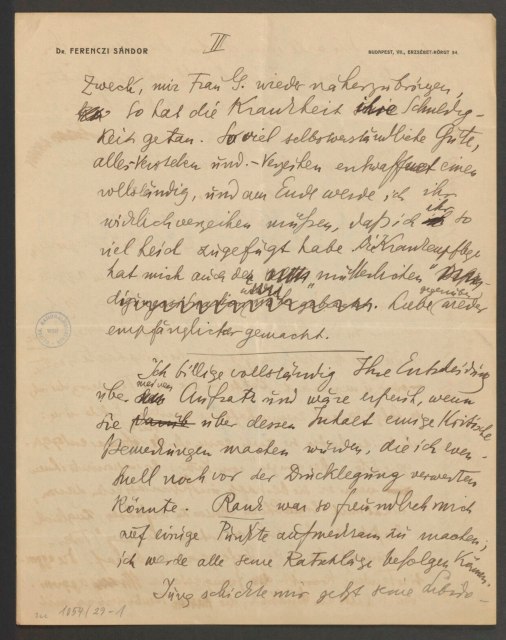 III
Dr. FERENCZI SÁNDOR
BUDAPEST, VII., ERZSÉBET-KÖRÚT 54.
Zweck, mir Frau G. wieder näherzubringen,
so hat die Krankheit ihre Schuldig-
keit getan. Soviel selbstverständliche Güte,
alles Verstehen und -Verzeihen entwaffnet einen
vollständig, und am Ende werde ich ihr
wirklich verzeihen müssen, daß ich ihr so
viel Leid zugefügt habe. Die Krankenpflege
hat mich auch der mütterlichen
Liebe gegenüber wieder
empfänglicher gemacht.
Ich billige vollständig Ihre Entscheidung
über meinen Aufsatz und wäre erfreut, wenn
Sie über dessen Inhalt einige kritische
Bemerkungen machen würden, die ich even-
tuell noch vor der Drucklegung verwerten
könnte. Rank war so freundlich mich
auf einige Punkte aufmerksam zu machen;
ich werde alle seine Ratschläge befolgen können.
Jung schickte mir jetzt seine Libido-
1054/29-1